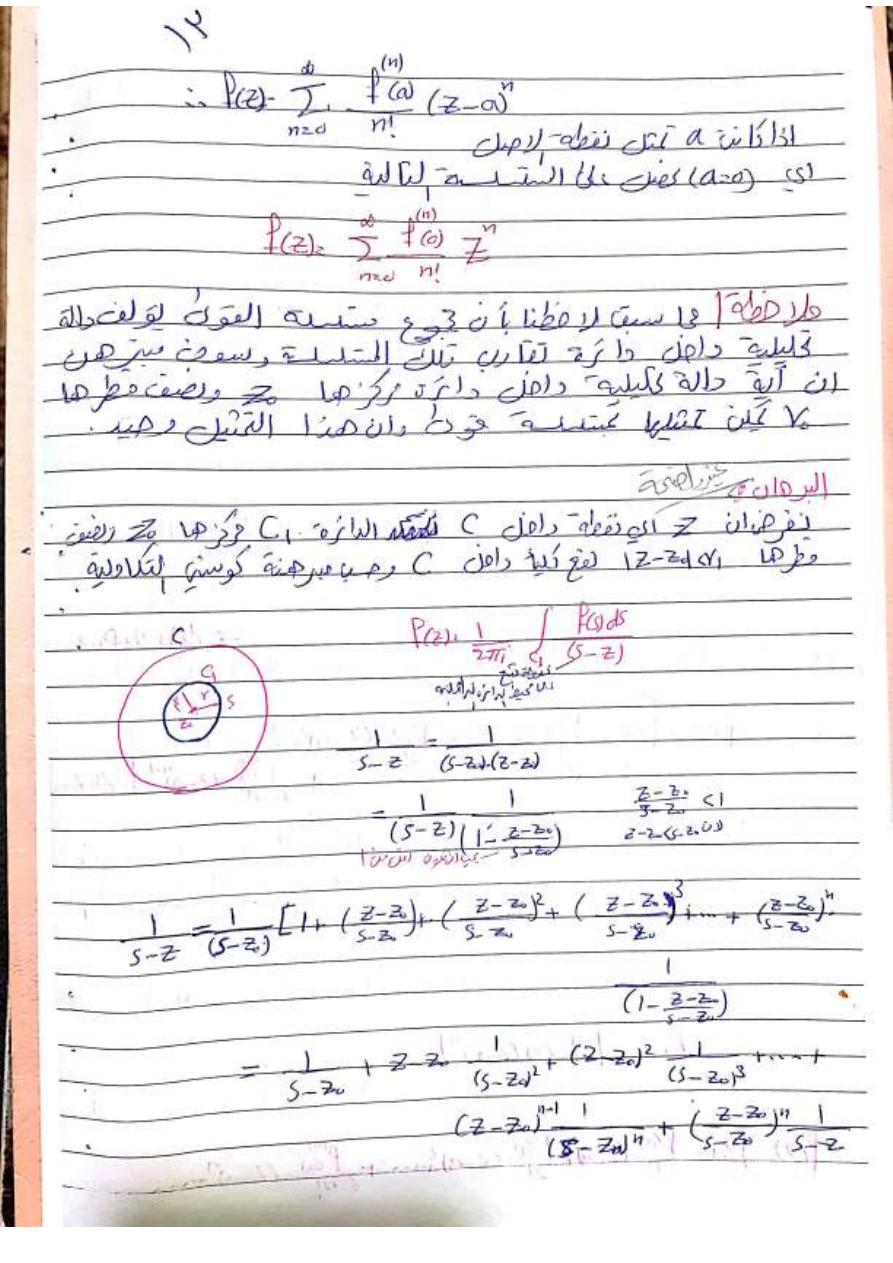 ١٢
∴ f(z) = ∑_{n=0}^{∞} f^{(n)}(a)/n! (z-a)^n
اذا كانت a تمثل نقطة الاصل
اي (a=0) نحصل على المتسلسلة التالية
f(z) = ∑_{n=0}^{∞} f^{(n)}(0)/n! z^n
ملاحظة/ مما سبق لاحظنا بأن مجموع متسلسلة القوى يؤلف دالة
تحليلية داخل دائرة تقارب تلك المتسلسلة وسوف نبرهن
ان أية دالة تحليلية داخل دائرة مركزها z₀ ونصف قطرها
r₀ يمكن تمثيلها بمتسلسلة قوى وان هذا التمثيل وحيد.
البرهان: غير واضحة
نفرض ان z اي نقطة داخل C الدائرة C₁ مركزها z₀ ونصف
قطرها |z-z₀|<r₁ تقع كلياً داخل C وحسب مبرهنة كوشي التكاملية
C
f(z) = 1/2πi ∫_{C₁} f(s)ds/(s-z)
C₁
r s
z
z₀
1/(s-z) = 1/((s-z₀)-(z-z₀))
= 1/(s-z) 1/(1-(z-z₀)/(s-z₀)) (z-z₀)/(s-z₀) <1
1/(s-z) = 1/(s-z₀) [1+((z-z₀)/(s-z₀))+((z-z₀)/(s-z₀))²+((z-z₀)/(s-z₀))³+...+((z-z₀)/(s-z₀))^n.
1/(1-(z-z₀)/(s-z₀))
= 1/(s-z₀) + z-z₀ 1/(s-z₀)² + (z-z₀)² 1/(s-z₀)³ +....+
(z-z₀)^{n-1} 1/(s-z₀)^n + ((z-z₀)/(s-z₀))^n 1/(s-z)